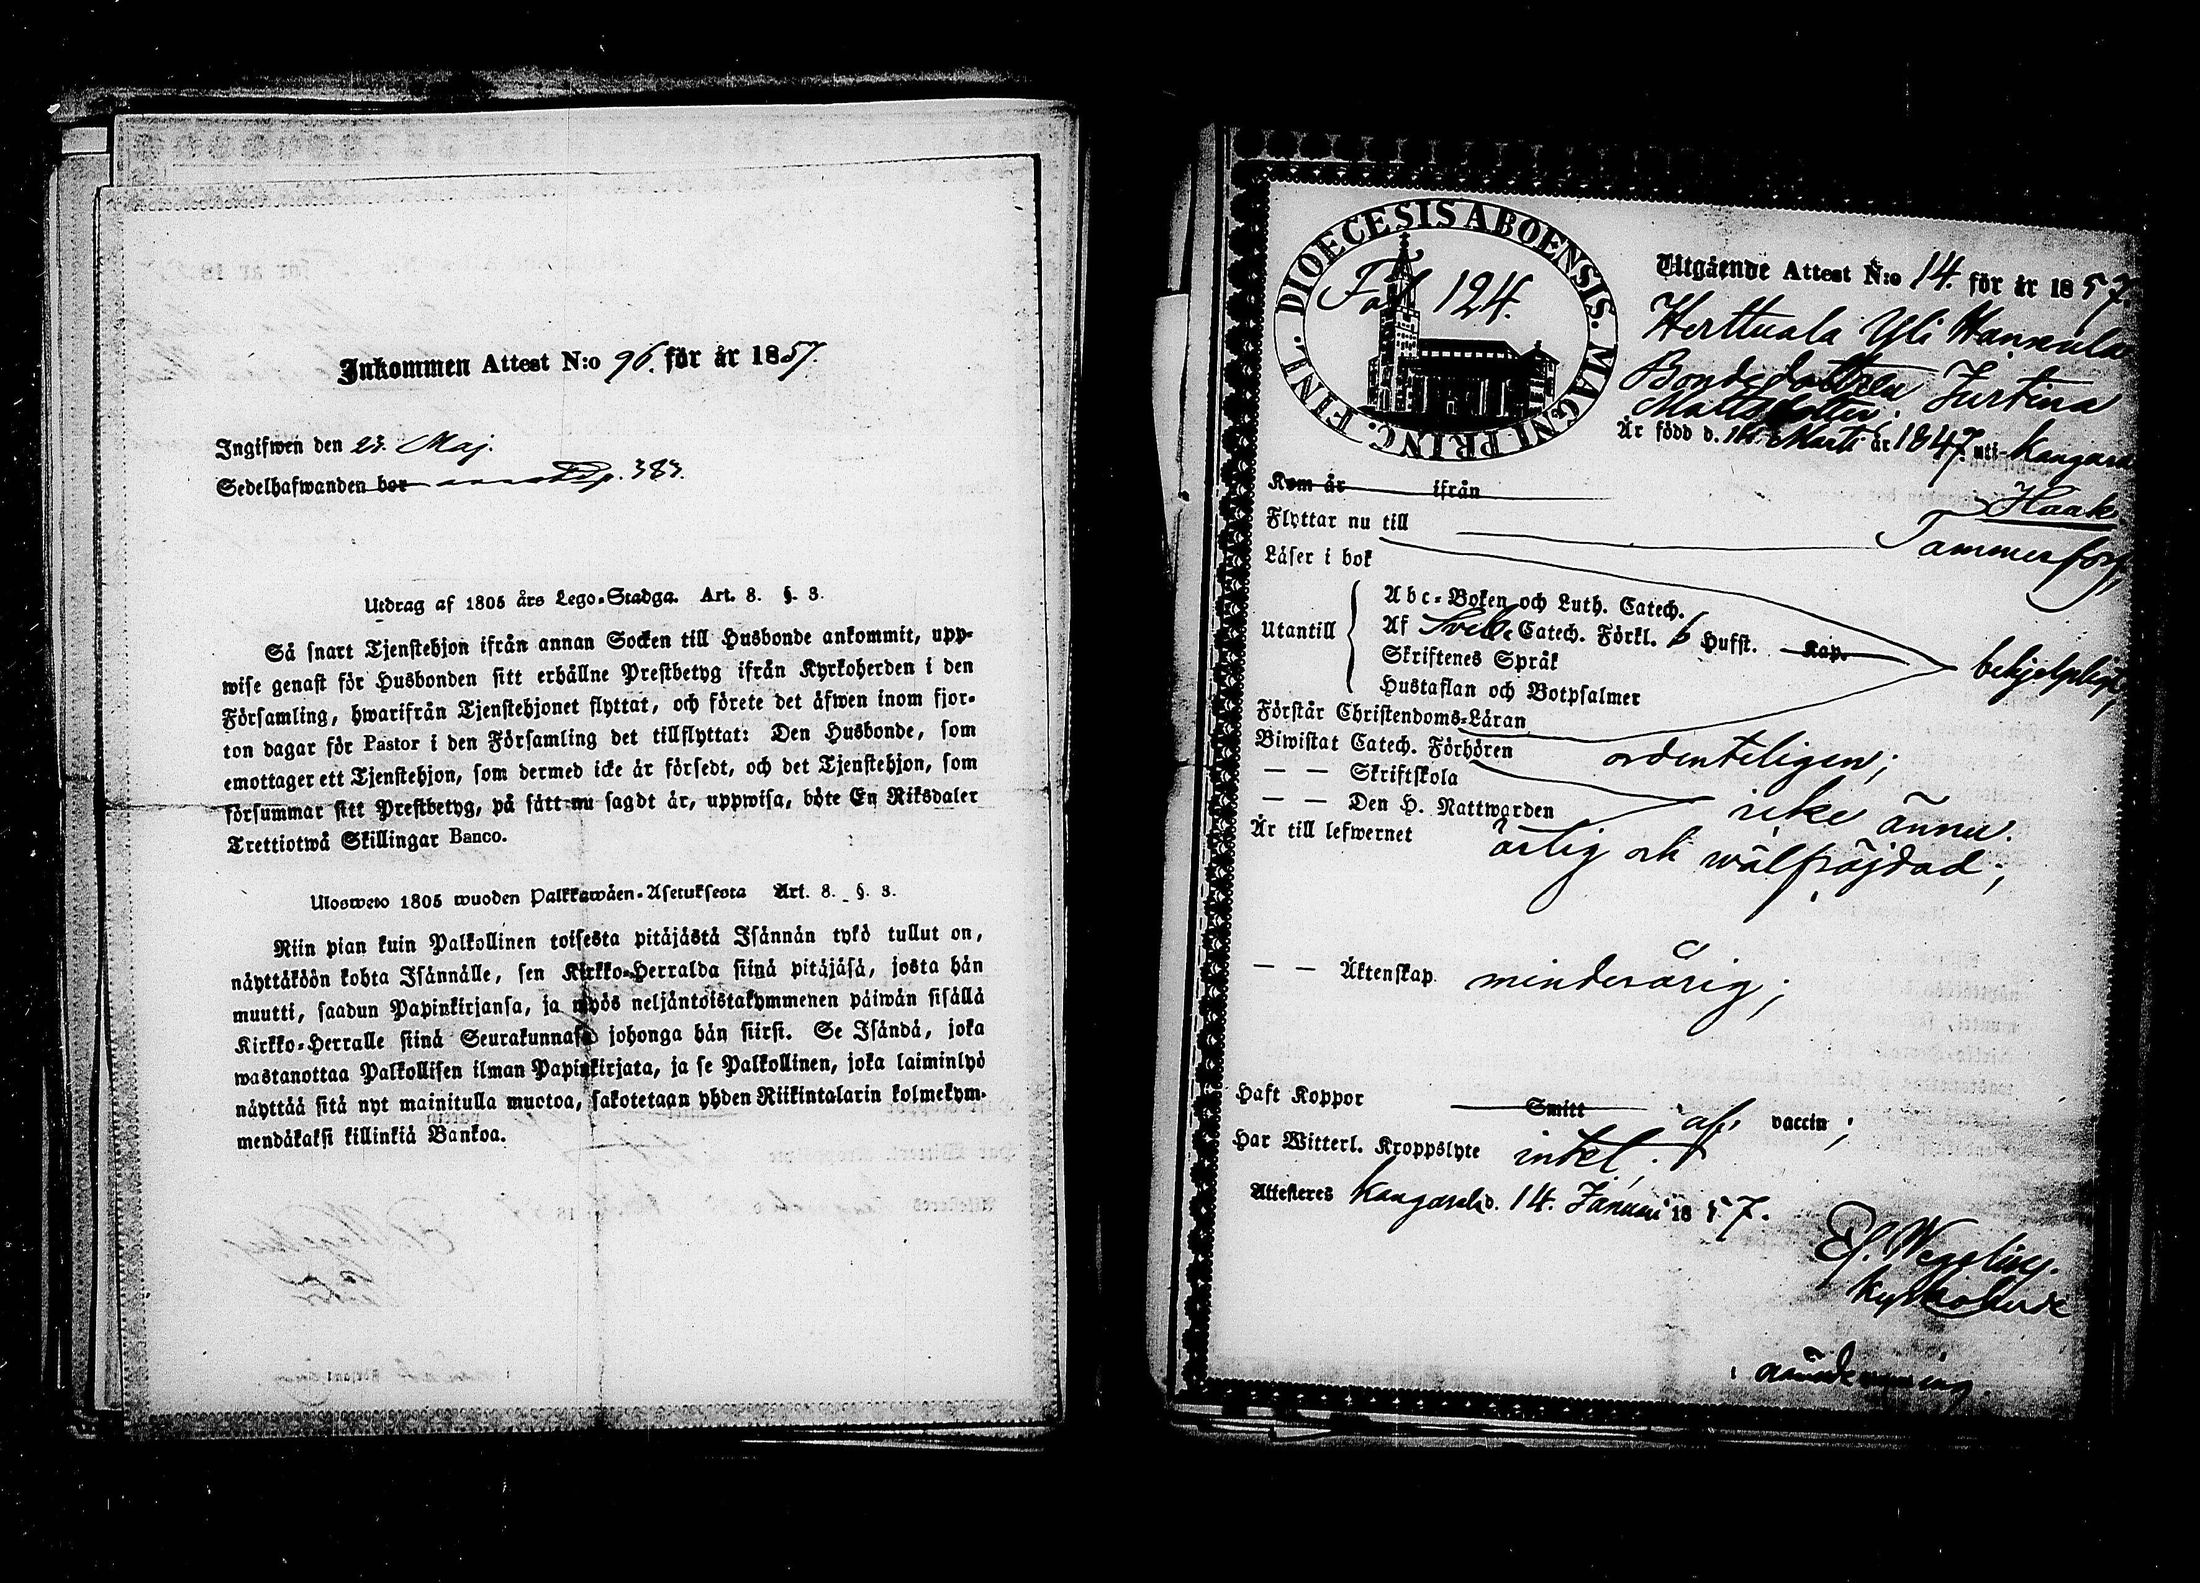 Inkommen Attest N:o 96. för år 1857.
Ingifwen den 23. Maj.
Sedelhafwanden bor p. 383.
Utdrag af 1805 års Lego-Stadga. Art. 8. §. 3.
Så snart Tjenstehjon ifrån annan Socken till Husbonde ankommit, upp-
wise genast för Husbonden sitt erhållne Prestbetyg ifrån Kyrkoherden i den
Församling, hwarifrån Tjenstehjonet flyttat, och förete det äfwen inom fjor-
ton dagar för Pastor i den Församling det tillflyttat: Den Husbonde, som
emottager ett Tjenstehjon, som dermed icke är försedt, och det Tjenstehjon, som
försummar sitt Prestbetyg, på sätt nu sagdt är, uppwisa, böte En Riksdaler
Trettiotwå Skillingar Banco.
Ulosweto 1805 wuoden Palkkawäen-Asetuksesta Art. 8. §. 3.
Niin pian kuin Palkollinen toisesta pitäjästä Isännän tykö tullut on,
näyttäköön kohta Isännälle, sen Kirkko-Herralda siinä pitäjäsä, josta hän
muutti, saadun Papinkirjansa, ja myös neljäntoistakymmenen päiwän sisällä
Kirkko-Herralle siinä Seurakunnasa johonga hän siirsi. Se Isändä, joka
wastanottaa Palkollisen ilman Papinkirjata, ja se Palkollinen, joka laiminlyö
näyttää sitä nyt mainitulla muotoa, sakotetaan yhden Riikintalarin kolmekym-
mendäkaksi killinkiä Bankoa.
DIOECESIS ABOENSIS. MAGNI PRINC. FINL.
Fol 124.
Utgående Attest N:o 14. för år 1857.
Herttuala Yli Hannula
Bondedottren Justina
Mattsdotter.
Är född d. 14. Marti år 1847. uti Kangasa
Kom år ifrån
Haak
Flyttar nu till Tammerfors
Läser i bok
Utantill
Abc-Boken och Luth. Catech.
Af Sveb. Catech. Förkl. 6 Hufst. Kap.
Skriftenes Språk
Hustaflan och Botpsalmer
behjelpligt,
Förstår Christendoms-Läran
Biwistat Catech. Förhören ordenteligen;
— — Skriftskola
— — Den H. Nattwarden icke ännu.
Är till lefwernet ärlig och wälfräjdad;
— — Äktenskap minderårig;
Haft Koppor Smitt af vaccin;
Har Witterl. Kroppslyte intet.
Attesteres Kangasala d. 14. Januari 1857.
Ef. Wegelius.
Kyrkoherde